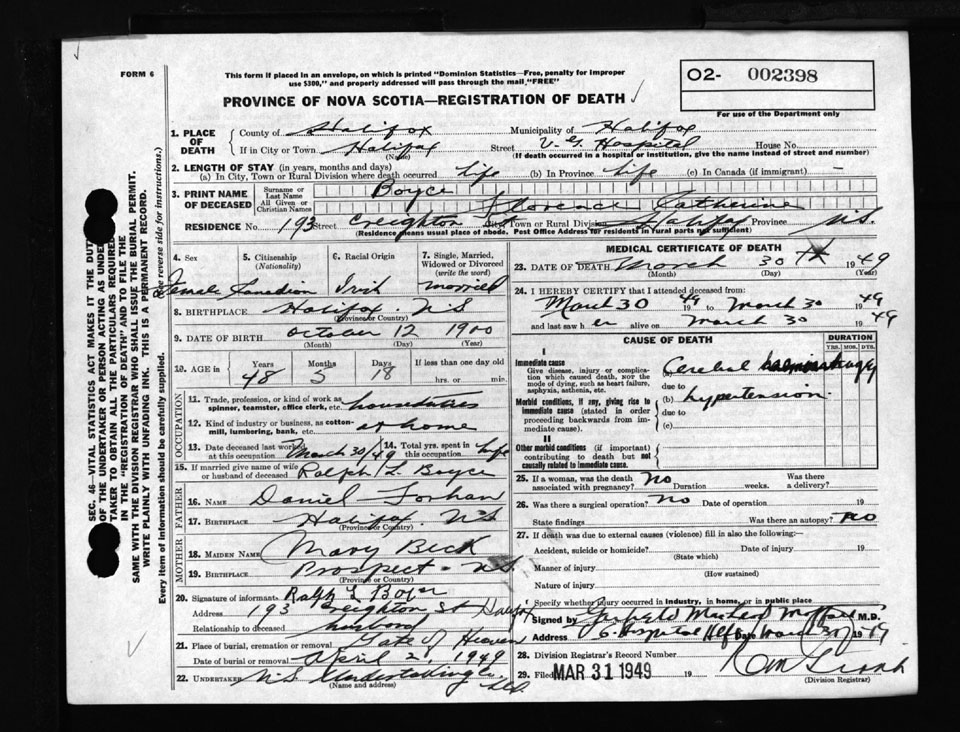 FORM 6
This form if placed in an envelope, on which is printed "Dominion Statistics—Free, penalty for improper
use $300," and properly addressed will pass through the mail, "FREE"
O2- 002398
PROVINCE OF NOVA SCOTIA—REGISTRATION OF DEATH
For use of the Department only
1. PLACE OF DEATH { County of Halifax Municipality of Halifax
If in City or Town Halifax Street V. G. Hospital House No.
(Name) (If death occurred in a hospital or institution, give the name instead of street and number)
2. LENGTH OF STAY (in years, months and days)
(a) In City, Town or Rural Division where death occurred life (b) In Province life (c) In Canada (if immigrant) —
3. PRINT NAME OF DECEASED { Surname or Last Name Boyce
All Given or Christian Names Florence Catherine
RESIDENCE No. 193 Street Creighton St City Town or Rural Division Halifax Province N.S.
(Residence means usual place of abode. Post Office Address for residents in rural parts not sufficient)
4. Sex 5. Citizenship (Nationality) 6. Racial Origin 7. Single, Married, Widowed or Divorced (write the word)
Female Canadian Irish married
8. BIRTHPLACE Halifax N.S
(Province or Country)
9. DATE OF BIRTH October 12 1900
(Month) (Day) (Year)
10. AGE in { Years Months Days If less than one day old
48 5 18 hrs. or min.
OCCUPATION
11. Trade, profession, or kind of work as spinner, teamster, office clerk, etc. housduties
12. Kind of industry or business, as cotton-mill, lumbering, bank, etc. at home
13. Date deceased last worked at this occupation March 30/49 14. Total yrs. spent in this occupation life
15. If married give name of wife or husband of deceased Ralph L. Boyce
FATHER
16. NAME Daniel Forhan
17. BIRTHPLACE Halifax. N.S
(Province or Country)
MOTHER
18. MAIDEN NAME Mary Beck
19. BIRTHPLACE Prospect - N.S.
(Province or Country)
20. Signature of informant Ralph L Boyce
Address 193 Creighton St Halifax
Relationship to deceased husband
21. Place of burial, cremation or removal Gate of Heaven
Date of burial or removal April 2, 1949
22. UNDERTAKER N.S Undertaking Co Ltd.
(Name and address)
MEDICAL CERTIFICATE OF DEATH
23. DATE OF DEATH March 30 th 1949
(Month) (Day) (Year)
24. I HEREBY CERTIFY that I attended deceased from:
March 30 1949 to March 30 1949
and last saw her alive on March 30 1949
CAUSE OF DEATH DURATION
YRS. MOS. DYS.
I
Immediate cause
Give disease, injury or complication which caused death, not the mode of dying, such as heart failure, asphyxia, asthenia, etc.
(a) Cerebral haemorrhage
due to
Morbid conditions, if any, giving rise to immediate cause (stated in order proceeding backwards from immediate cause).
(b) hypertension
due to
(c)
II
Other morbid conditions (if important) contributing to death but not causally related to immediate cause.
25. If a woman, was the death associated with pregnancy? No Duration weeks. Was there a delivery?
26. Was there a surgical operation? No Date of operation 19
State findings Was there an autopsy? No
27. If death was due to external causes (violence) fill in also the following:—
Accident, suicide or homicide? Date of injury 19
(State which)
Manner of injury
(How sustained)
Nature of injury
Specify whether injury occurred in industry, in home, or in public place
Signed by M.D.
Address G. Hospital Hlfx Date March 30 1949
28. Division Registrar's Record Number
29. Filed MAR 31 1949 19
(Division Registrar)
SEC. 46—VITAL STATISTICS ACT MAKES IT THE DUTY
OF THE UNDERTAKER OR PERSON ACTING AS UNDER-
TAKER TO OBTAIN ALL THE PARTICULARS REQUIRED
IN THE "REGISTRATION OF DEATH" AND TO FILE THE
SAME WITH THE DIVISION REGISTRAR WHO SHALL ISSUE THE BURIAL PERMIT.
WRITE PLAINLY WITH UNFADING INK. THIS IS A PERMANENT RECORD.
Every item of information should be carefully supplied. (See reverse side for instructions.)